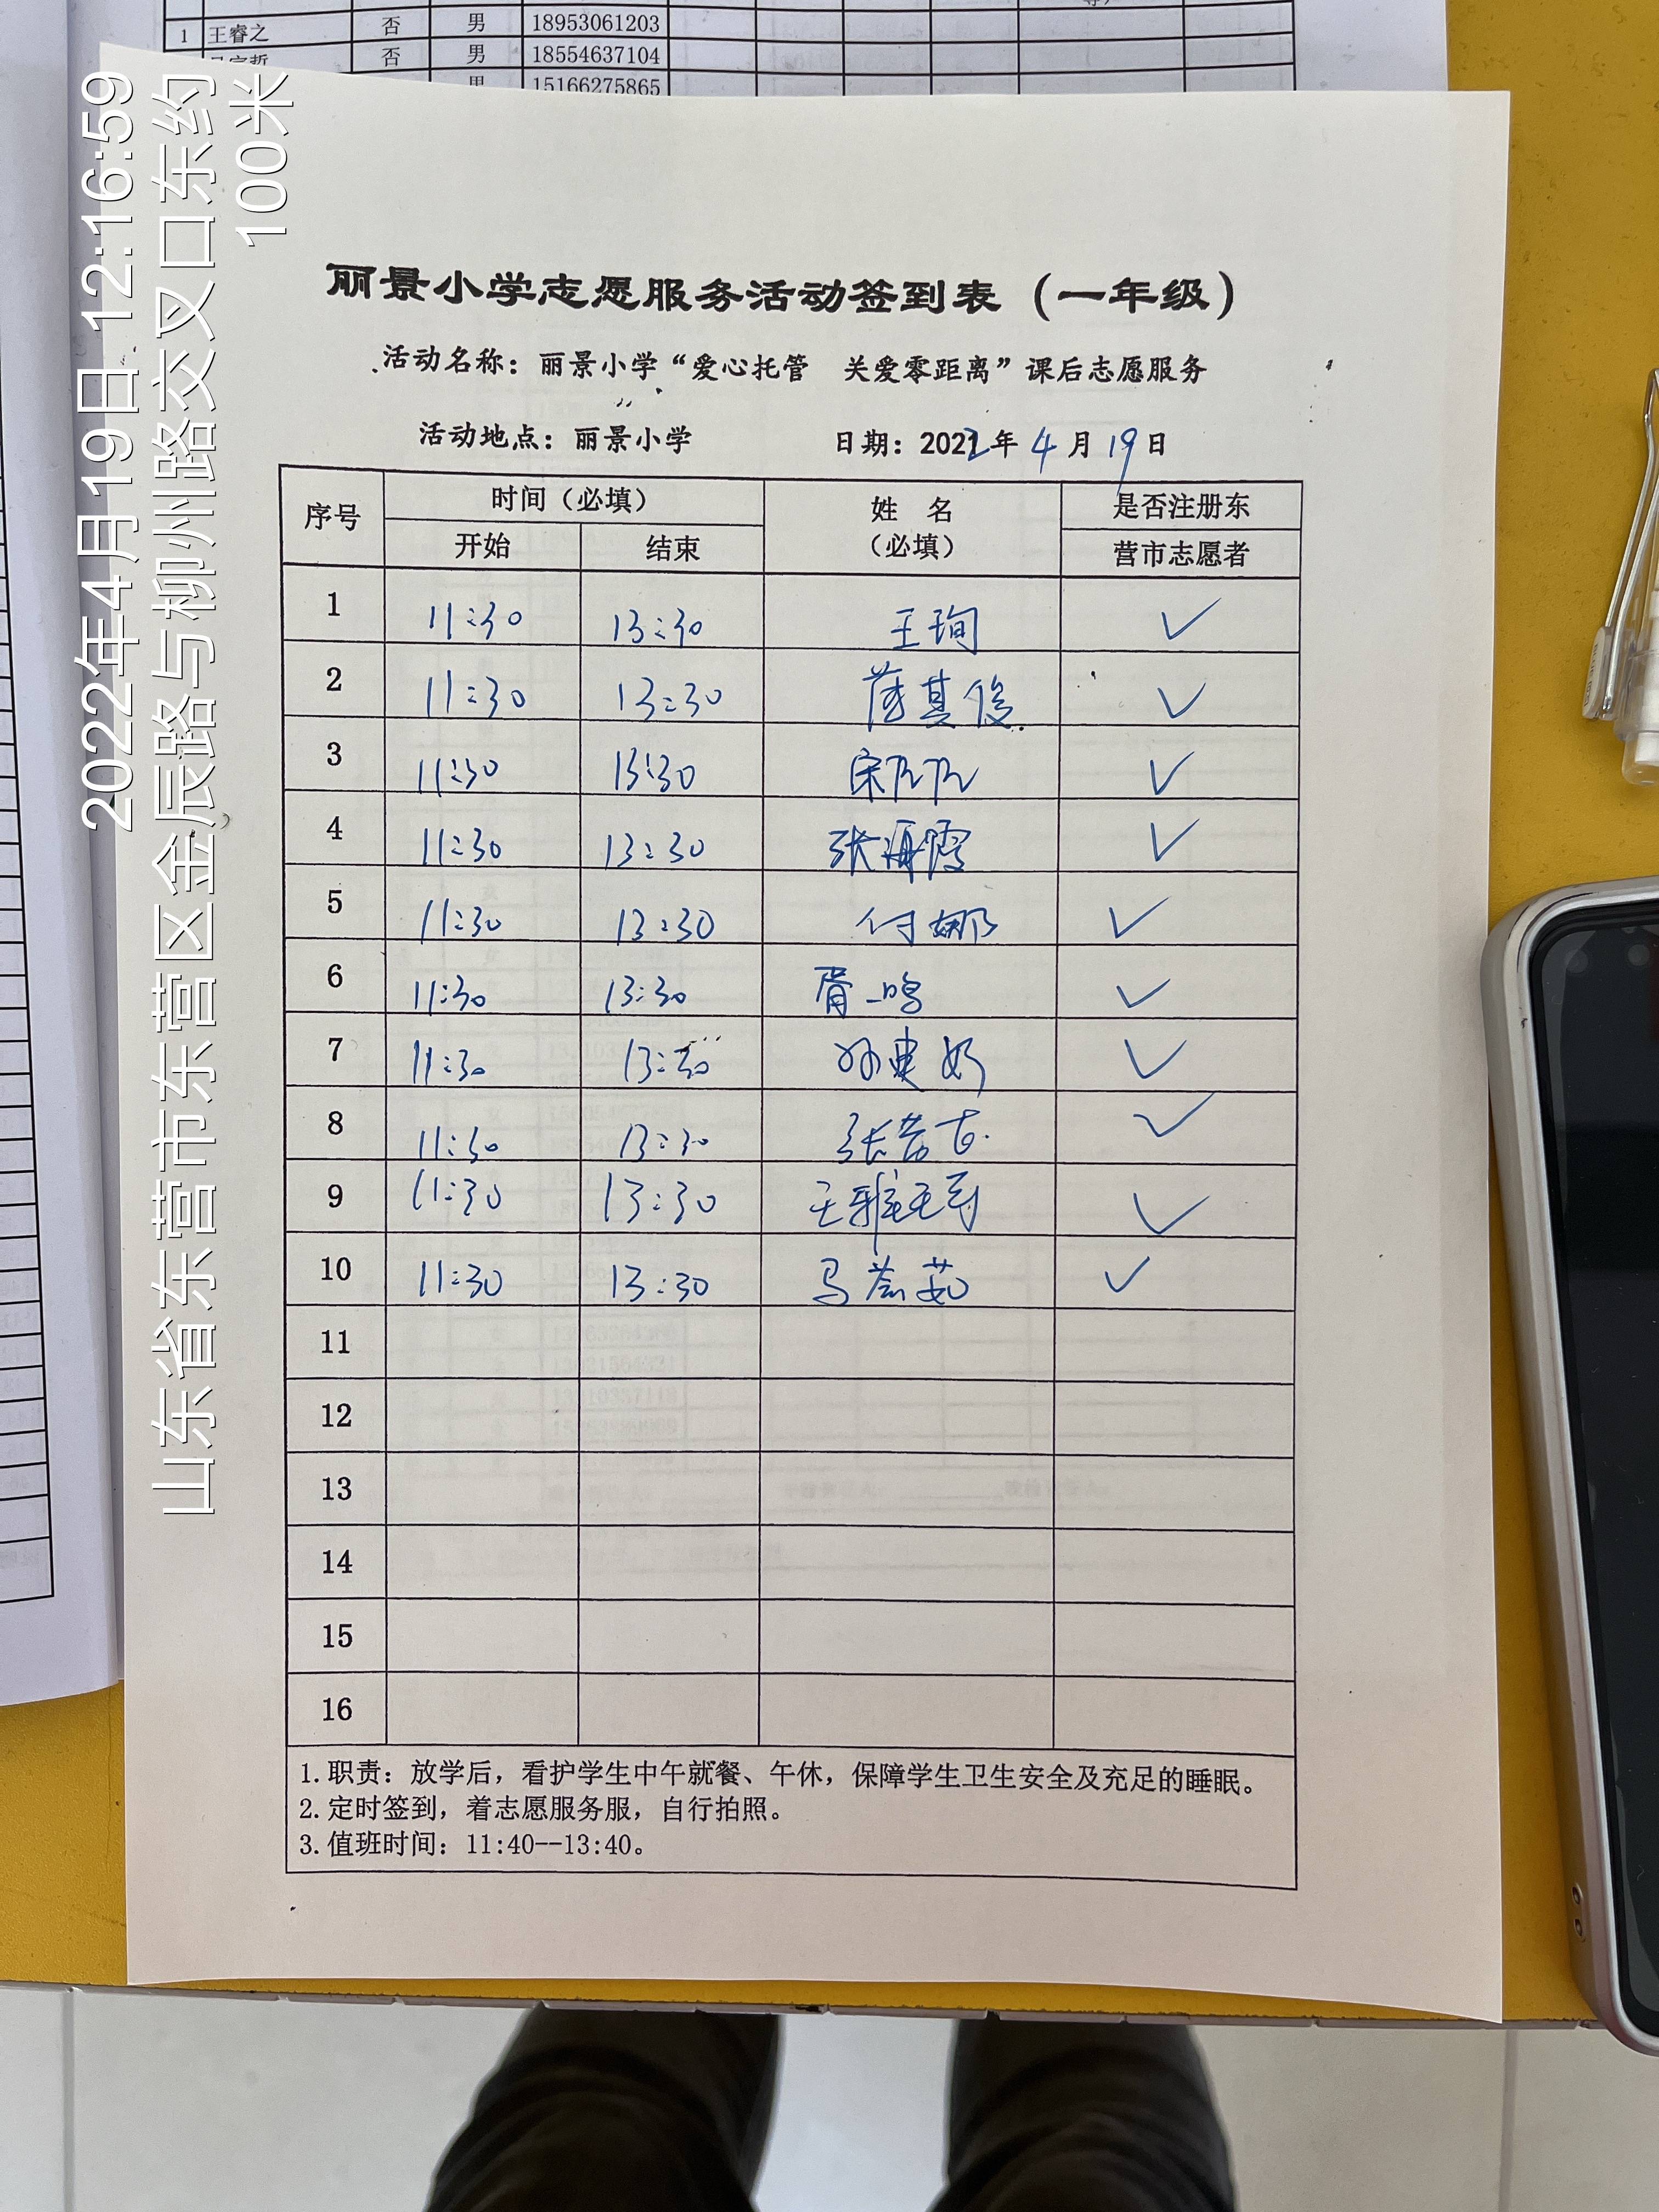 1 王睿之 否 男 18953061203
否 男 18554637104
男 15166275865
2022年4月19日 12:16:59
山东省东营市东营区金辰路与柳州路交叉口东约
100米
丽景小学志愿服务活动签到表（一年级）
活动名称：丽景小学“爱心托管 关爱零距离”课后志愿服务
活动地点：丽景小学 日期：2022年 4月 19日
序号 时间（必填） 姓 名 是否注册东
开始 结束 （必填） 营市志愿者
1 11:30 13:30 王珣 ✓
2 11:30 13:30 其俊 ✓
3 11:30 13:30 宋 ✓
4 11:30 13:30 张海霞 ✓
5 11:30 13:30 付娜 ✓
6 11:30 13:30 胥一鸣 ✓
7 11:30 13:30 孙 ✓
8 11:30 13:30 张 ✓
9 11:30 13:30 王雅 ✓
10 11:30 13:30 马 茹 ✓
11
12
13
14
15
16
1.职责：放学后，看护学生中午就餐、午休，保障学生卫生安全及充足的睡眠。
2.定时签到，着志愿服务服，自行拍照。
3.值班时间：11:40--13:40。